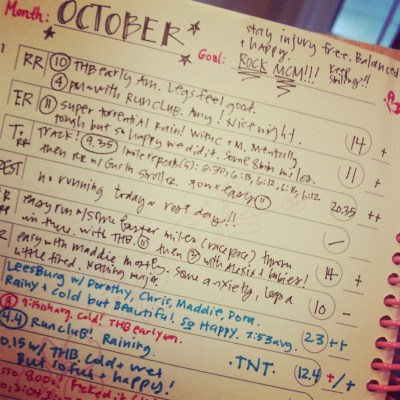 Month: OCTOBER
stay injury free. Balanced
+ happy. Keep
Goal: ROCK MCM!!! smiling!!
RR 10 THB early Am. Legs feel good.
4 pm with RUNCLUB. Amy! Nice night. 14 +
ER 11 super torrential Rain! With C + M. Mentally
tough but so happy we did it. Some 8min miles. 11 +
Track! 9.35 1 mile repeat(s): 6:30, 6:13, 6:12, 6:12
then RR w/ Gus in Stroller. easy 11 20.35 ++
REST no running today - rest day!! —
easy run w/ some faster miles (race pace) thrown
in there. with THB. 11 then 3 with Alexis + babies! 14 +
easy with maddie mostly. Some anxiety, legs a
little tired. Nothing major. 10 —
Leesburg w/ Dorothy, Chris, Maddie, Dora.
Rainy + Cold but Beautiful. So Happy. 7:53 avg. 23 ++
8 Cold! THB early am.
4.4 RunClub! Raining. ·TNT· 12.4 +/+
0.15 w/ THB. Cold + wet
But so fun + happy!
800s!